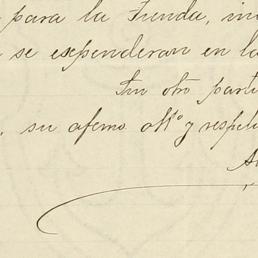 para la Tienda, in
se espenderan en la
Sin otro parti
su afemo attº y respet